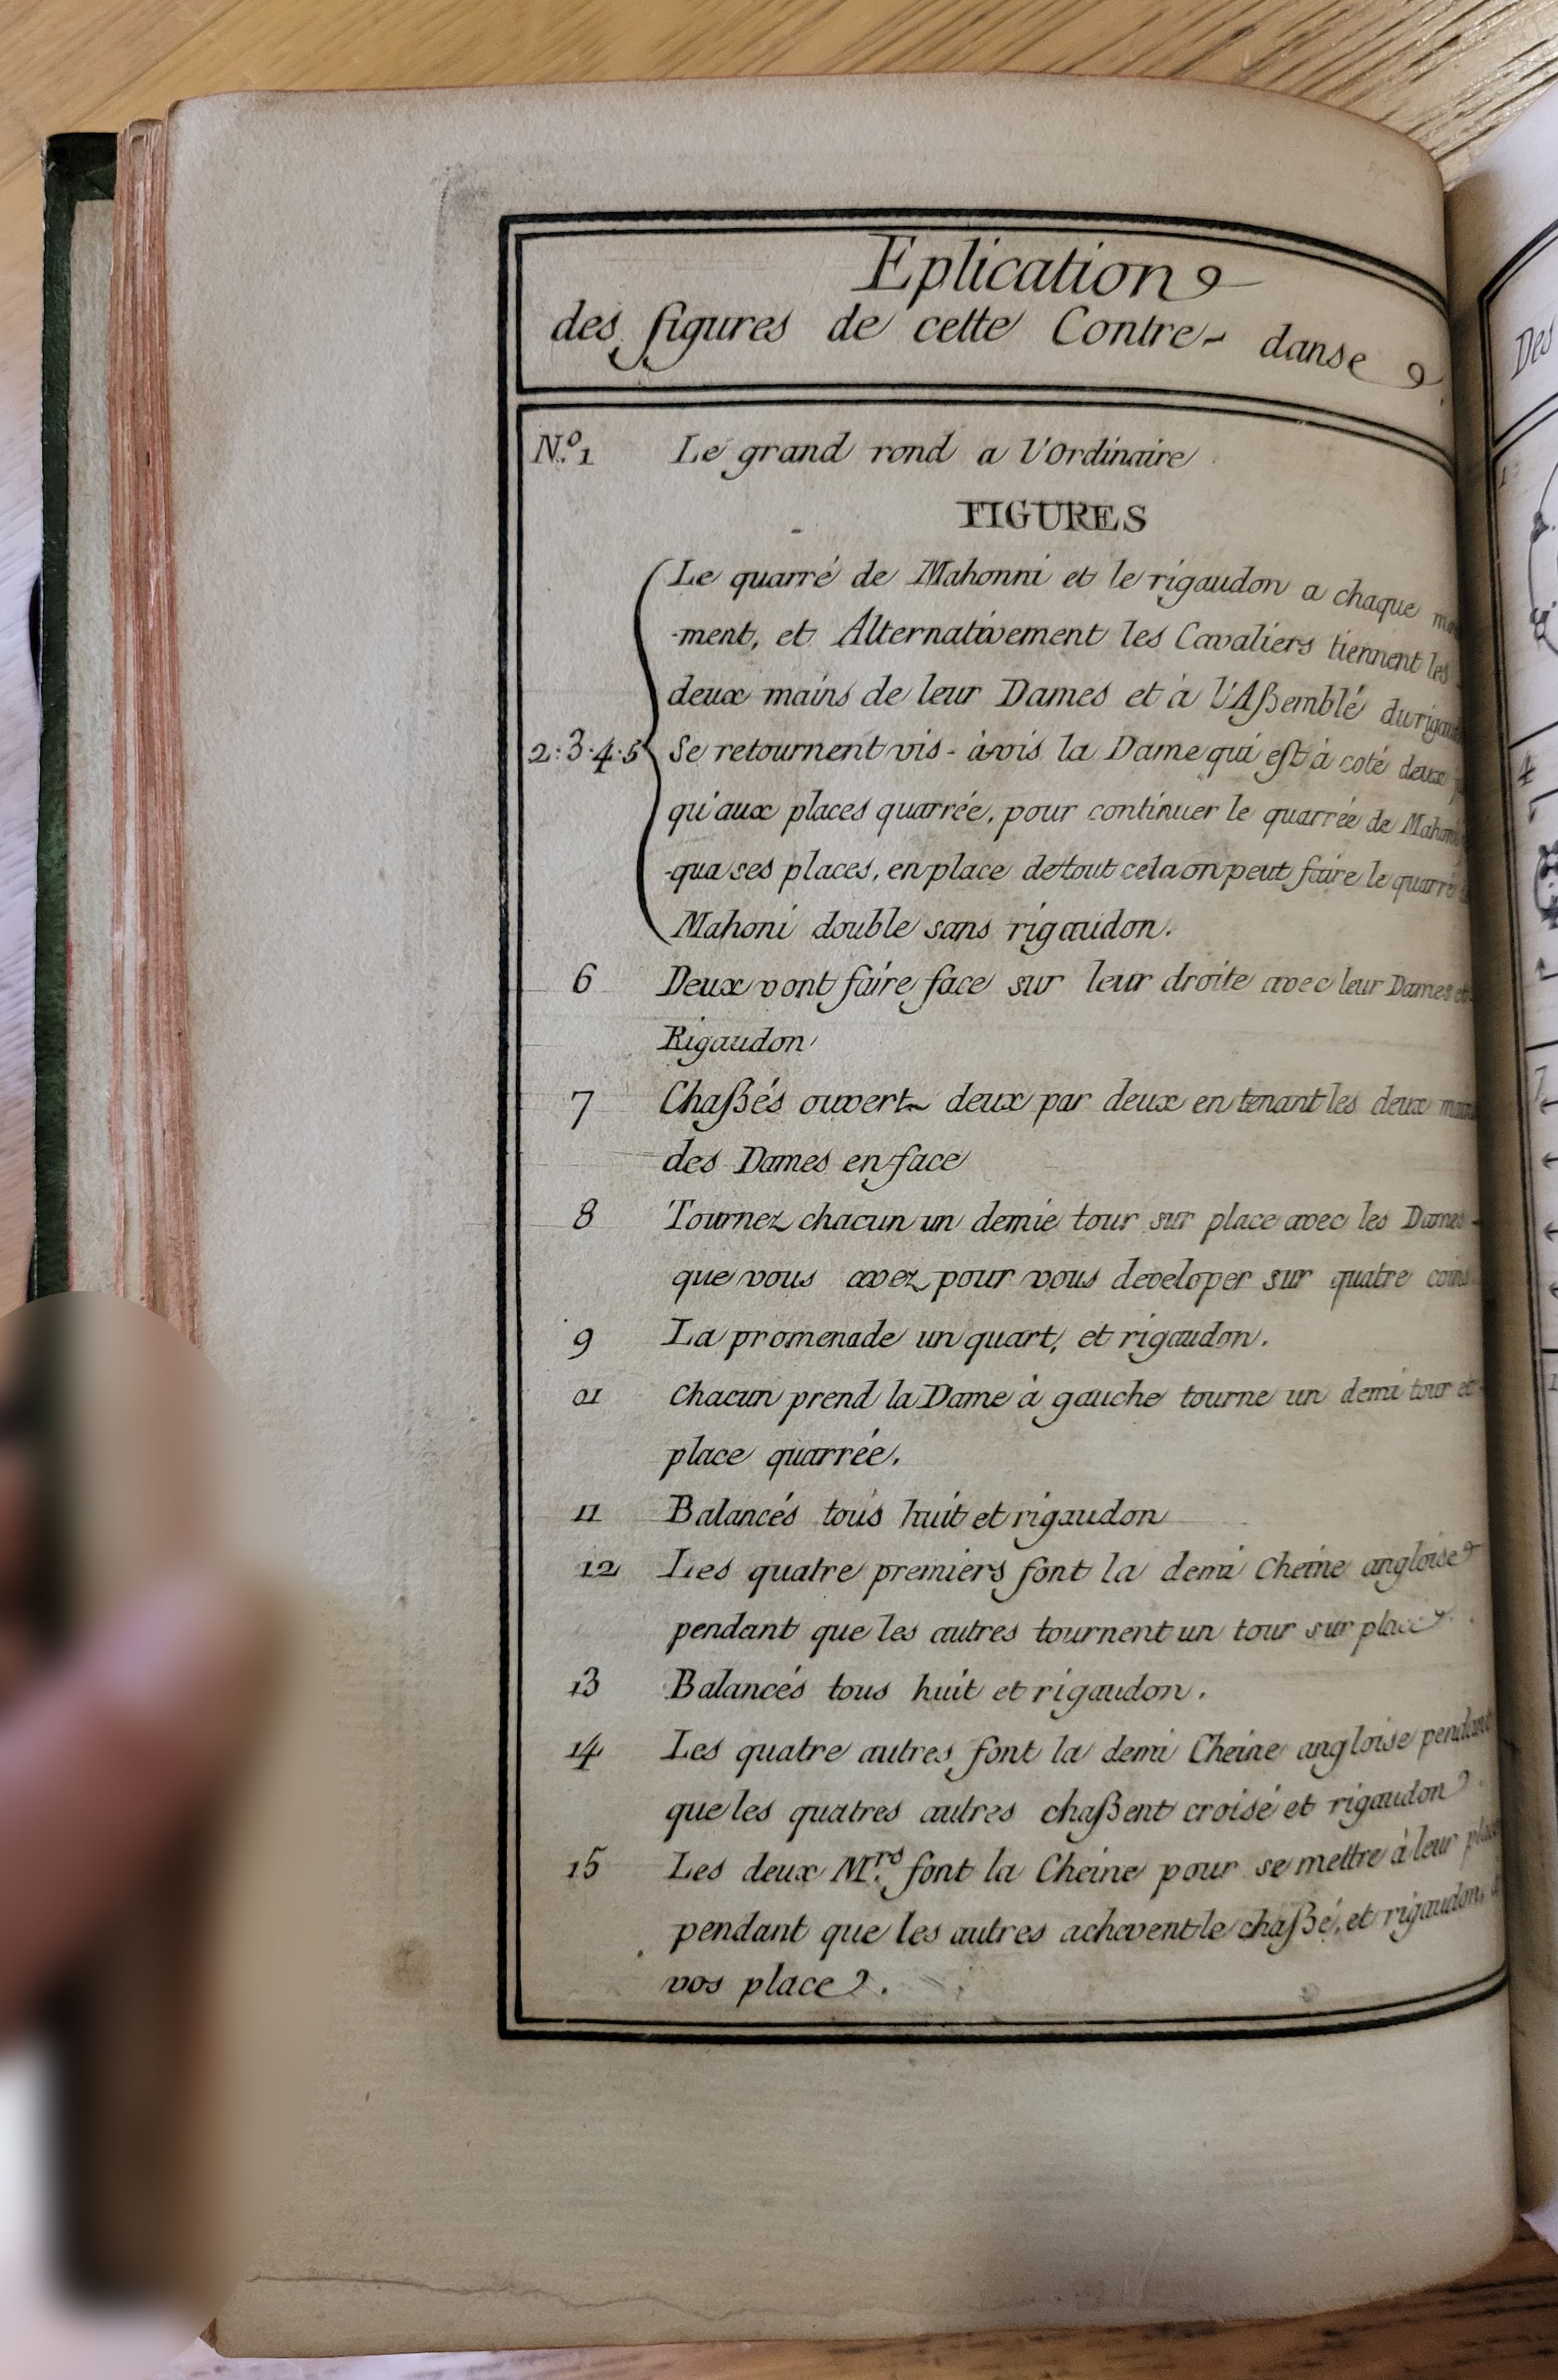 Eplication
des figures de cette Contre- danse
N.º 1 Le grand rond a l'Ordinaire
FIGURES
Le quarré de Mahonni et le rigaudon a chaque
-ment, et Alternativement les Cavaliers tiennent les
deux mains de leur Dames et à l'Aßemblé du
2.3.4.5 Se retournent vis-à vis la Dame qui est à coté deux
qu'aux places quarrée, pour continuer le quarrée de
-qua ses places, en place de tout cela on peut faire le quarré
Mahoni double sans rigaudon.
6 Deux vont faire face sur leur droite avec leur Dames et
Rigaudon
7 Chaßés ouvert deux par deux en tenant les deux
des Dames en face
8 Tournez chacun un demie tour sur place avec les Dames
que vous avez pour vous developer sur quatre coins
9 La promenade un quart, et rigaudon.
01 Chacun prend la Dame à gauche tourne un demi tour et
place quarrée.
11 Balancés tous huit et rigaudon
12 Les quatre premiers font la demi Cheine angloise
pendant que les autres tournent un tour sur place
13 Balancés tous huit et rigaudon.
14 Les quatre autres font la demi Cheine angloise pendant
que les quatres autres chaßent croisé et rigaudon
15 Les deux M.rs font la Cheine pour se mettre à leur
pendant que les autres achevent le chaßé, et rigaudon,
vos place.
Des
4
7